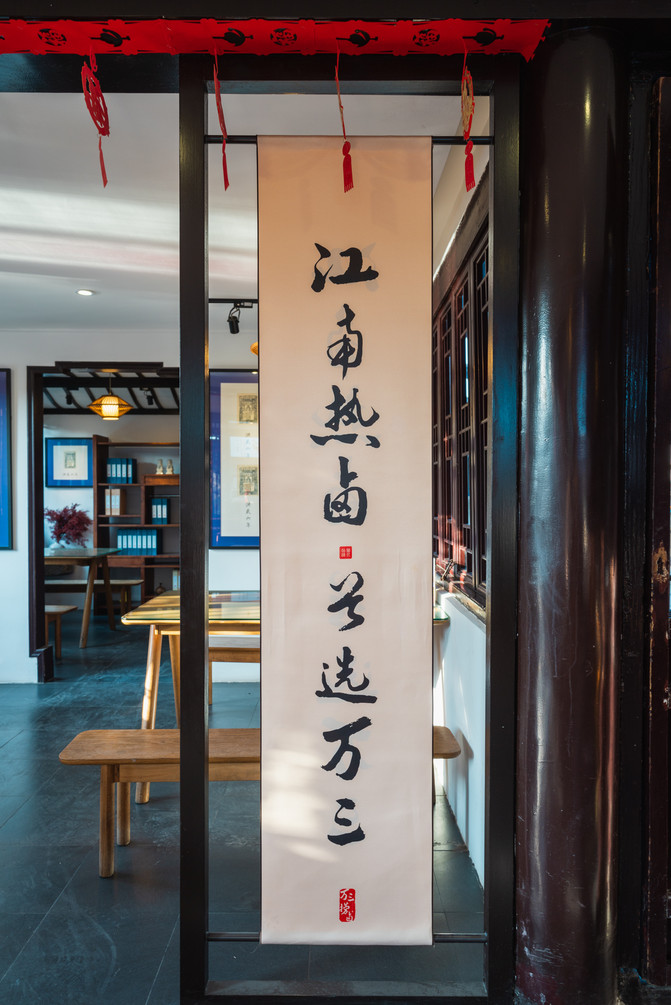 江南热卤首选万三